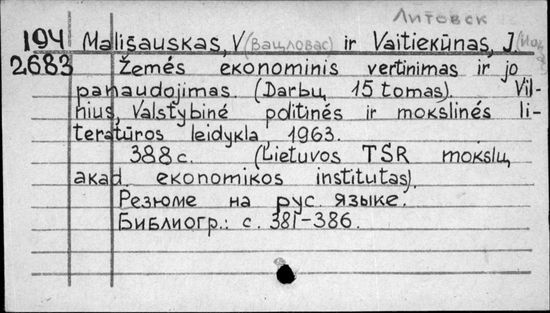 Литовск
194 Mališauskas, V (Вацловас) ir Vaitiekūnas, J
2683 Žemės ekonominis vertinimas ir jo
panaudojimas. (Darbų 15 tomas). Vil-
nius, Valstybinė politinės ir mokslinės li-
teratūros leidykla 1963.
388 с. (Lietuvos TSR mokslų
akad. ekonomikos institutas).
Резюме на рус. языке.
Библиогр.: с. 381-386.